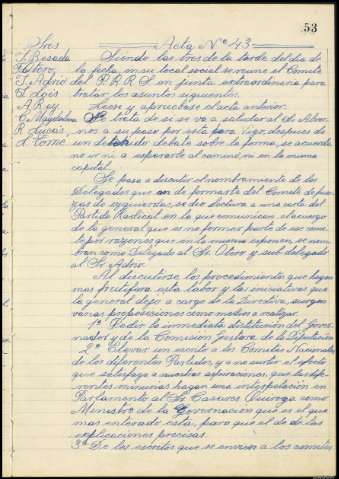 53
Sres
Acta Nº 43
J. Besada
Siendo las tres de la tarde del dia de
F. Otero
la fecha, en su local social se reune el Comite
S. Adrio
del P.R.R.S. en junta extraordinaria para
S. Lois
tratar los asuntos siguientes.
A. Rey
Leese y apruebase el acta anterior.
C. Magdalena
Se trata de si se va a saludar al de Alvor-
R. Lucais
noz a su paso por esta para Vigo, despues de
A. Torre
un debatido debate sobre la forma, se acuerda
no ir ni a esperarte al comun, ni en la misma
capital.
Se pasa a discutir el nombramiento de los
Delegados que an de formar del Comite de fuer-
zas de izquierdas, se dio lectura a una carta del
Partido Radical en la que comunican el acuerdo
de la general que es no formar parte de ese comi-
te por razones que en la misma exponen, se nom-
bran como Delegado al Sr Otero y sub delegado
al Sr Adrio.
Al discutirse los procedimientos que hagan
mas frutifera esta labor y las iniciativas que
la general dejo a cargo de la Directiva, surgen
varias proposiciones como medios a realizar.
1ª Pedir la inmediata distitucion del Gover-
nador y de la Comision Jestora de la Diputación
2ª Elevar un escrito a los Comites Nacionales
de los diferentes Partidos, y a no surtir el efecto
que satisfaga a nuestras aspiraciones, que las dife-
rentes minorias hagan una interpelación en
Parlamento al Sr Casares Quiroga como
Ministro de la Governacion que es el que
mas enterado esta, para que el de de
las esplicaciones precisas.
3ª De los escritos que se envien a los comites